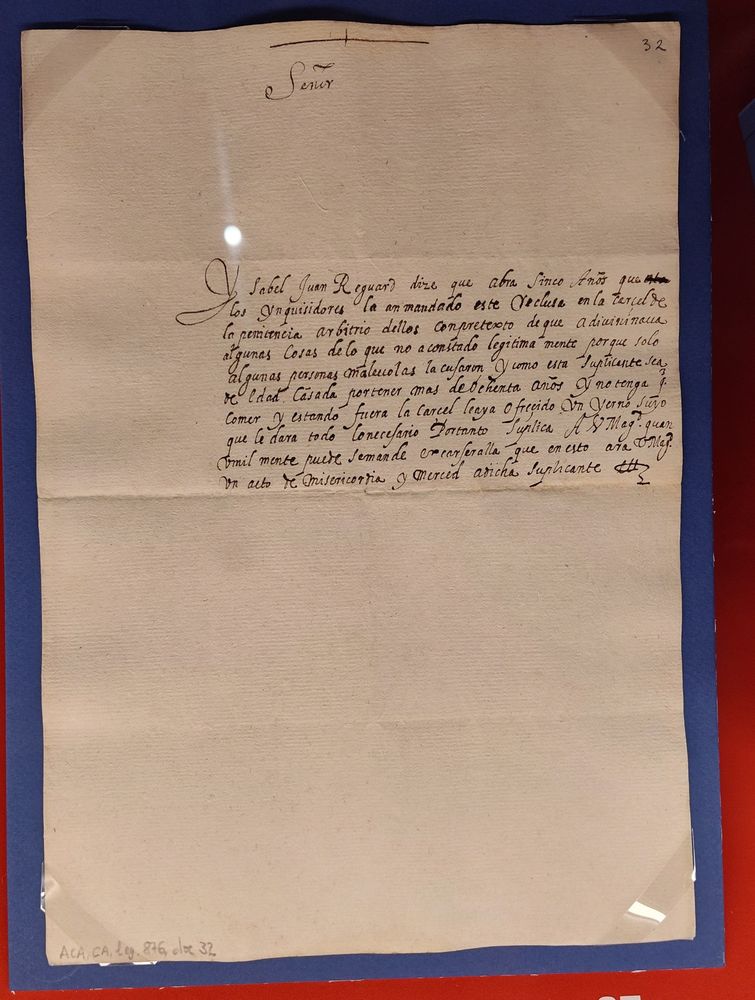 32
Señor
Ysabel Juan Reguard dize que abra sinco Años que
los ynquisidores la an mandado este Reclusa en la Carcel de
la penitencia arbitrio dellos con pretexto de que adivinava
algunas Cosas de lo que no a constado legitima mente porque solo
algunas personas malevolas la cusaron y como esta suplicante sea
de Edad Casada por tener mas de ochenta años y no tenga q.
Comer y estando fuera la carcel leaya ofrecido Un yerno suyo
que le dara todo lo necesario Portanto suplica A V Magd. quan
Umil mente puede se mande excarseralla que en esto ara V Magd.
Un acto de misericordia y merced adicha suplicante
ACA, CA, leg. 876, doc 32